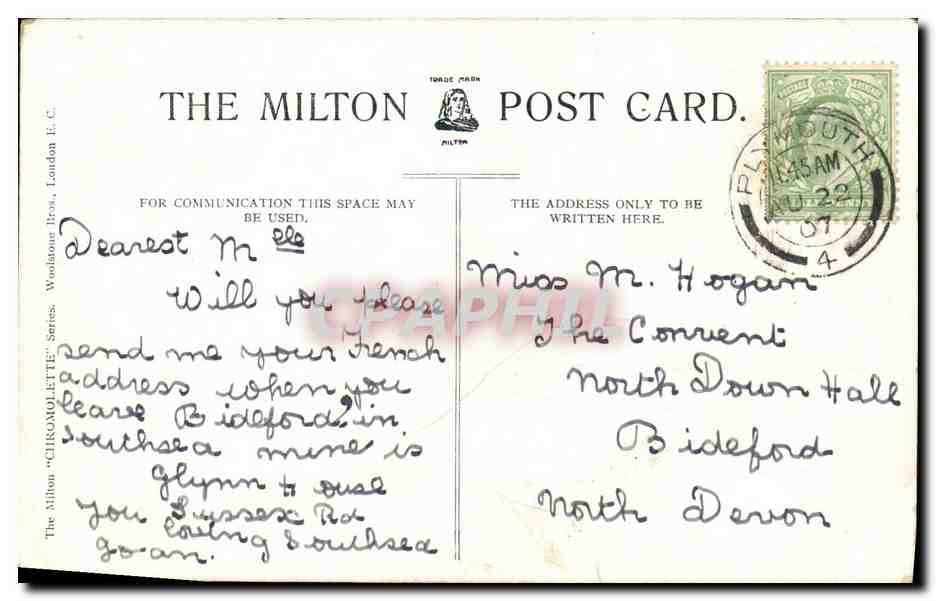 TRADE MARK
THE MILTON POST CARD.
MILTON
FOR COMMUNICATION THIS SPACE MAY
BE USED.
Dearest Melle
Will you please
send me your French
address when you
leave Bideford, in
Southsea mine is
Glynn House
You Sussex Rd
loving Southsea
Joan.
THE ADDRESS ONLY TO BE
WRITTEN HERE.
Miss M. Hogan
The Convent
North Down Hall
Bideford
North Devon
PLYMOUTH
11.45AM
AU 22
07
4
The Milton "CHROMOLETTE" Series. Woolstone Bros., London E. C.
CPAPHIL